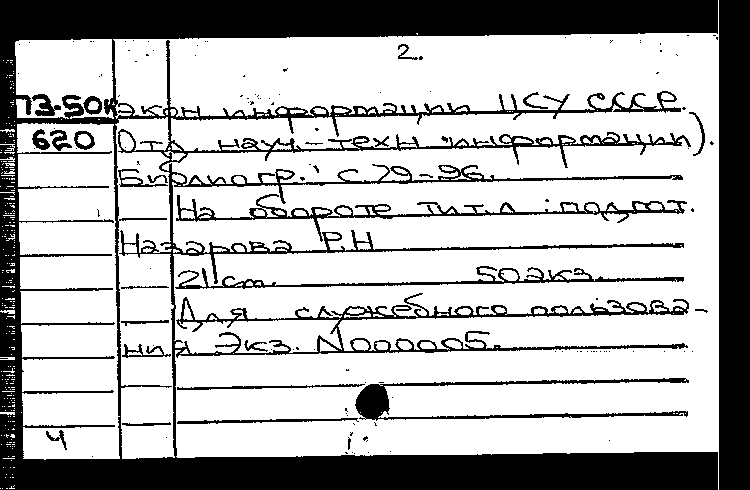 2.
73-50к экон информации ЦСУ СССР.
620 Отд. науч.-техн информации).
Библиогр.: с 79-96.
На обороте тит.л :подгот.
Назарова Р.Н
21 cm. 50 экз.
Для служебного пользова-
ния Экз. N000005.
4